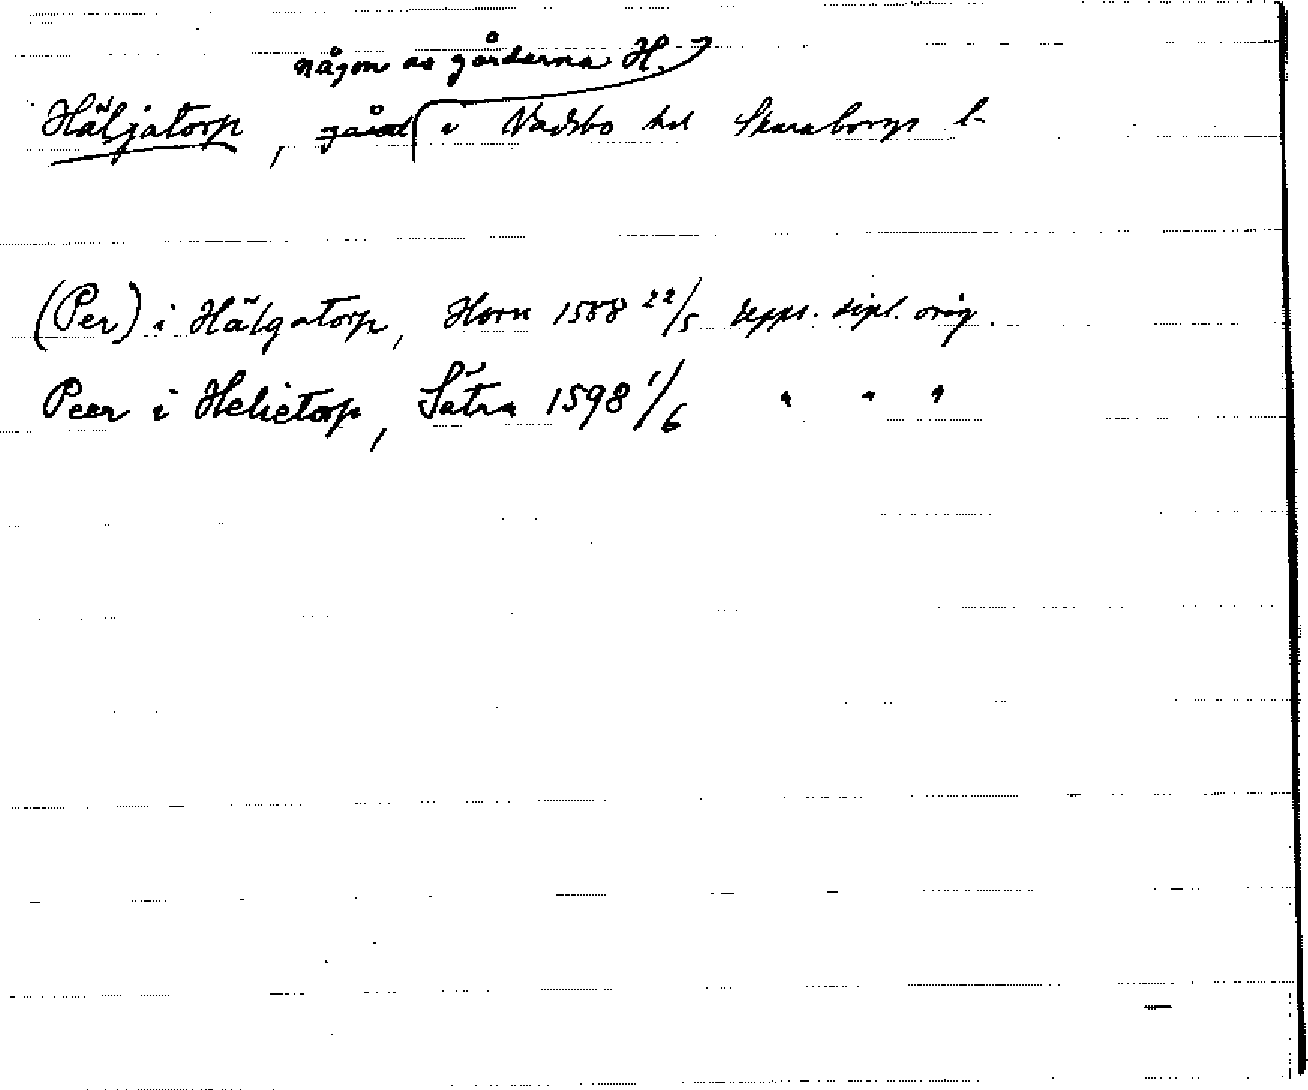 någon av gårdarna H.
Häljatorp, gård i Vadsbo hd Skaraborgs l.
(Per) i Hälgatorp, Horn 1588 22/5 uppr. dipl. orig.
Peer i Helietorp, Sätra 1598 1/6 " " "